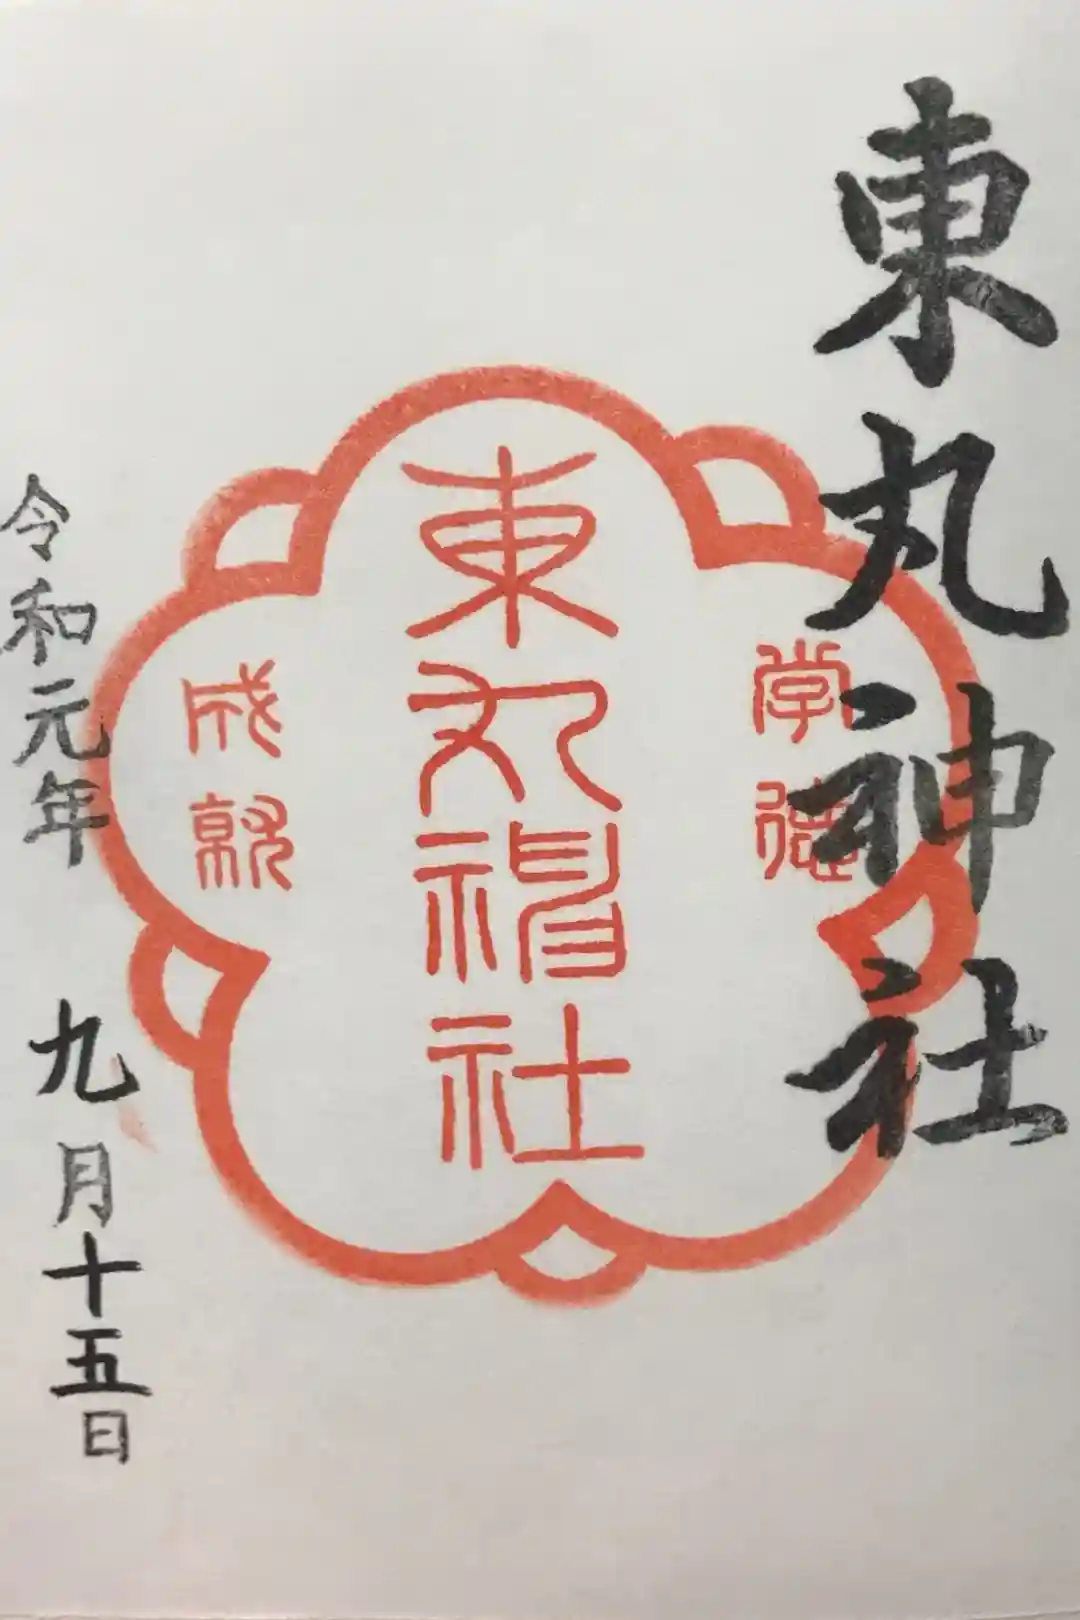 東丸神社
学徳
東丸神社
成就
令和元年 九月十五日